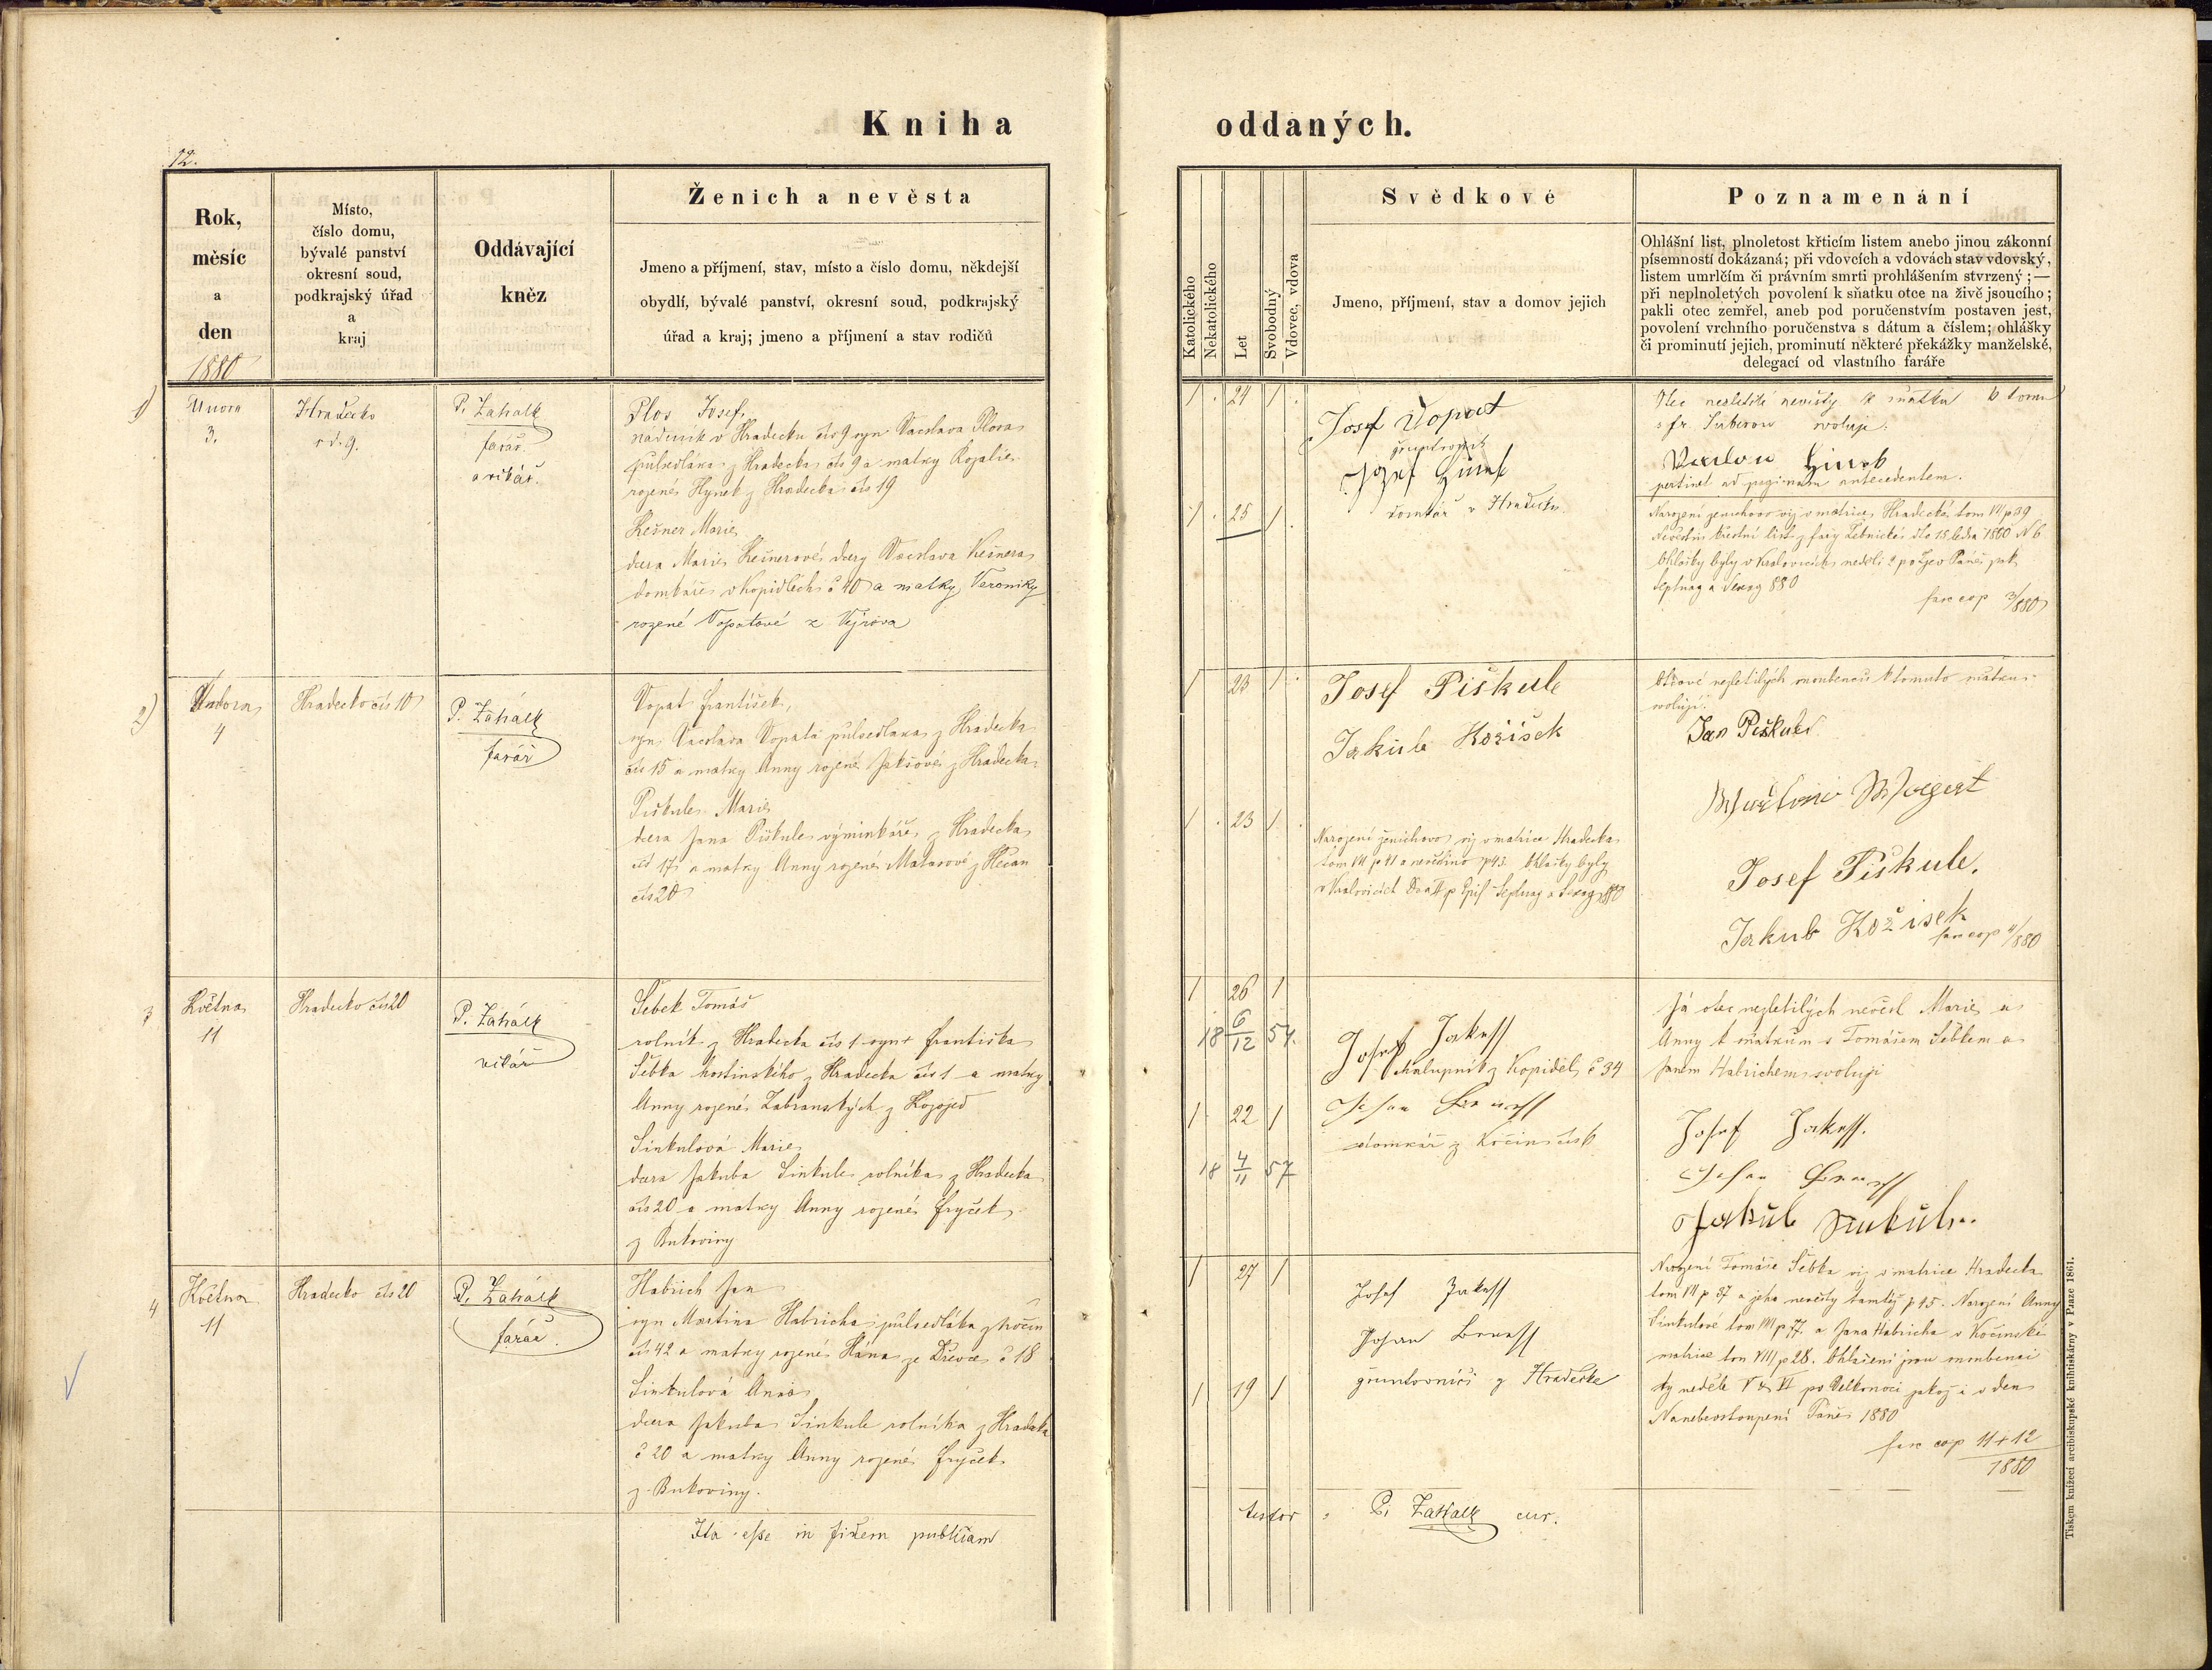 Kniha
oddaných.
12.
Rok,
měsíc
a
den
1880
Místo,
číslo domu,
bývalé panství
okresní soud,
podkrajský úřad
a
kraj
Oddávající
kněz
Ženich a nevěsta
Jmeno a příjmení, stav, místo a číslo domu, někdejší
obydlí, bývalé panství, okresní soud, podkrajský
úřad a kraj; jmeno a příjmení a stav rodičů
Katolického
Nekatolického
Let
Svobodný
Vdovec, vdova
Svědkové
Jmeno, příjmení, stav a domov jejich
Poznamenání
Ohlášní list, plnoletost křticím listem anebo jinou zákonní
písemností dokázaná; při vdovcích a vdovách stav vdovský,
listem umrlčím či právním smrti prohlášením stvrzený; —
při neplnoletých povolení k sňatku otce na živě jsoucího;
pakli otec zemřel, aneb pod poručenstvím postaven jest,
povolení vrchního poručenstva s dátum a číslem; ohlášky
či prominutí jejich, prominutí některé překážky manželské,
delegací od vlastního faráře
1)
Února
3.
Hradecko
9.
P. Zahálk
farář
a vikář.
Plos Josef,
v Hradecku čís 9 syn Vacslava Plosa
půlsedláka z Hradecka čís 9 a matky Rozalie
rozené Hynek z Hradecka čís 19
Kešner Marie,
dcera Marie Kešnerové dcery Vacslava Kešnera
domkáře v Kopidlech č 40 a matky Veroniky
rozené Vopatové z Výrova
1 24 1
Josef Vopat
gruntovník
Jozef
domkář v Hradecku
1 25 1
Otec nezletilé nevěsty k sňatku k tomu
svoluje.
pertinet ad paginam antecedentem.
Narození ženichovo viz v matrice Hradecké tom VII p 39
Ohlášky byly v Kralovicích neděli 2 po Zjev Páně pak
Septuag a Sexag 880
fasc cop 3/880
2)
Února
4
Hradecko čís 10
P. Zahálk
farář
Vopat František,
syn Vacslava Vopata půlsedláka z Hradecka
čís 15 a matky Anny rozené Jakšové z Hradecka
Piškule Marie
dcera Jana Piškule výminkáře z Hradecka
čís 17 a matky Anny rozené z Hlečan
čís 20
1 23 1
Josef Piškule
Jakub Kožíšek
1 23 1
Narození ženichovo viz v matrice Hradecka
tom VII p 41 a nevěstino p 43. Ohlášky byly
v Kralovicích Dom II p Epif Septuag a Sexag 880
Otcové nezletilých snoubenců k tomuto sňatku
svolují.
Jan Piškule
Josef Piškule.
Jakub Kožíšek
fasc cop 4/880
3
Května
11
Hradecko čís 20
P. Zahálk
vikář
Šebek Tomáš
rolník z Hradecka čís 1 syn Františka
Šebka hostinského z Hradecka čís 1 a matky
Anny rozené Zábranských z Kozojed
Sinkulová Marie
dcera Jakuba Sinkule rolníka z Hradecka
čís 20 a matky Anny rozené Fryček
z Bukoviny
1 26 1
18 6/12 54.
Josef Jakess
chalupník z Kopidel č 34
domkář z Kočína
1 22 1
18 4/11 57
Já otec nezletilých nevěst Marie a
Anny k sňatkům s Tomášem Šebkem a
Janem Habrichem svoluji
Josef Jakess.
Jakub Sinkule.
4
Května
11
Hradecko čís 20
P. Zahálk
farář
Habrich Jan
syn Martina Habricha půlsedláka z Kočín
čís 42 a matky rozené Hána ze Dřevce č 18
Sinkulová Anna
dcera Jakuba Sinkule rolníka z Hradecka
č 20 a matky Anny rozené Fryček
z Bukoviny.
1 27 1
Josef Jakess
gruntovníci z Hradecka
1 19 1
Narození Tomáše Šebka viz v matrice Hradecka
tom VII p 37 a jeho nevěsty tamtéž p 45. Narození Anny
Sinkulové tom VII p 77. a Jana Habricha v Kočínské
matrice tom VIII p 28. Ohlášeni jsou snoubenci
ty neděle V & VI po Velkonoci jakož i v den
Nanebevstoupení Páně 1880
fasc cop 11 + 12
1880
Ita esse in fidem publicam
testor P. Zahálk cur.
Tiskem knížecí arcibiskupské knihtiskárny v Praze 1861.